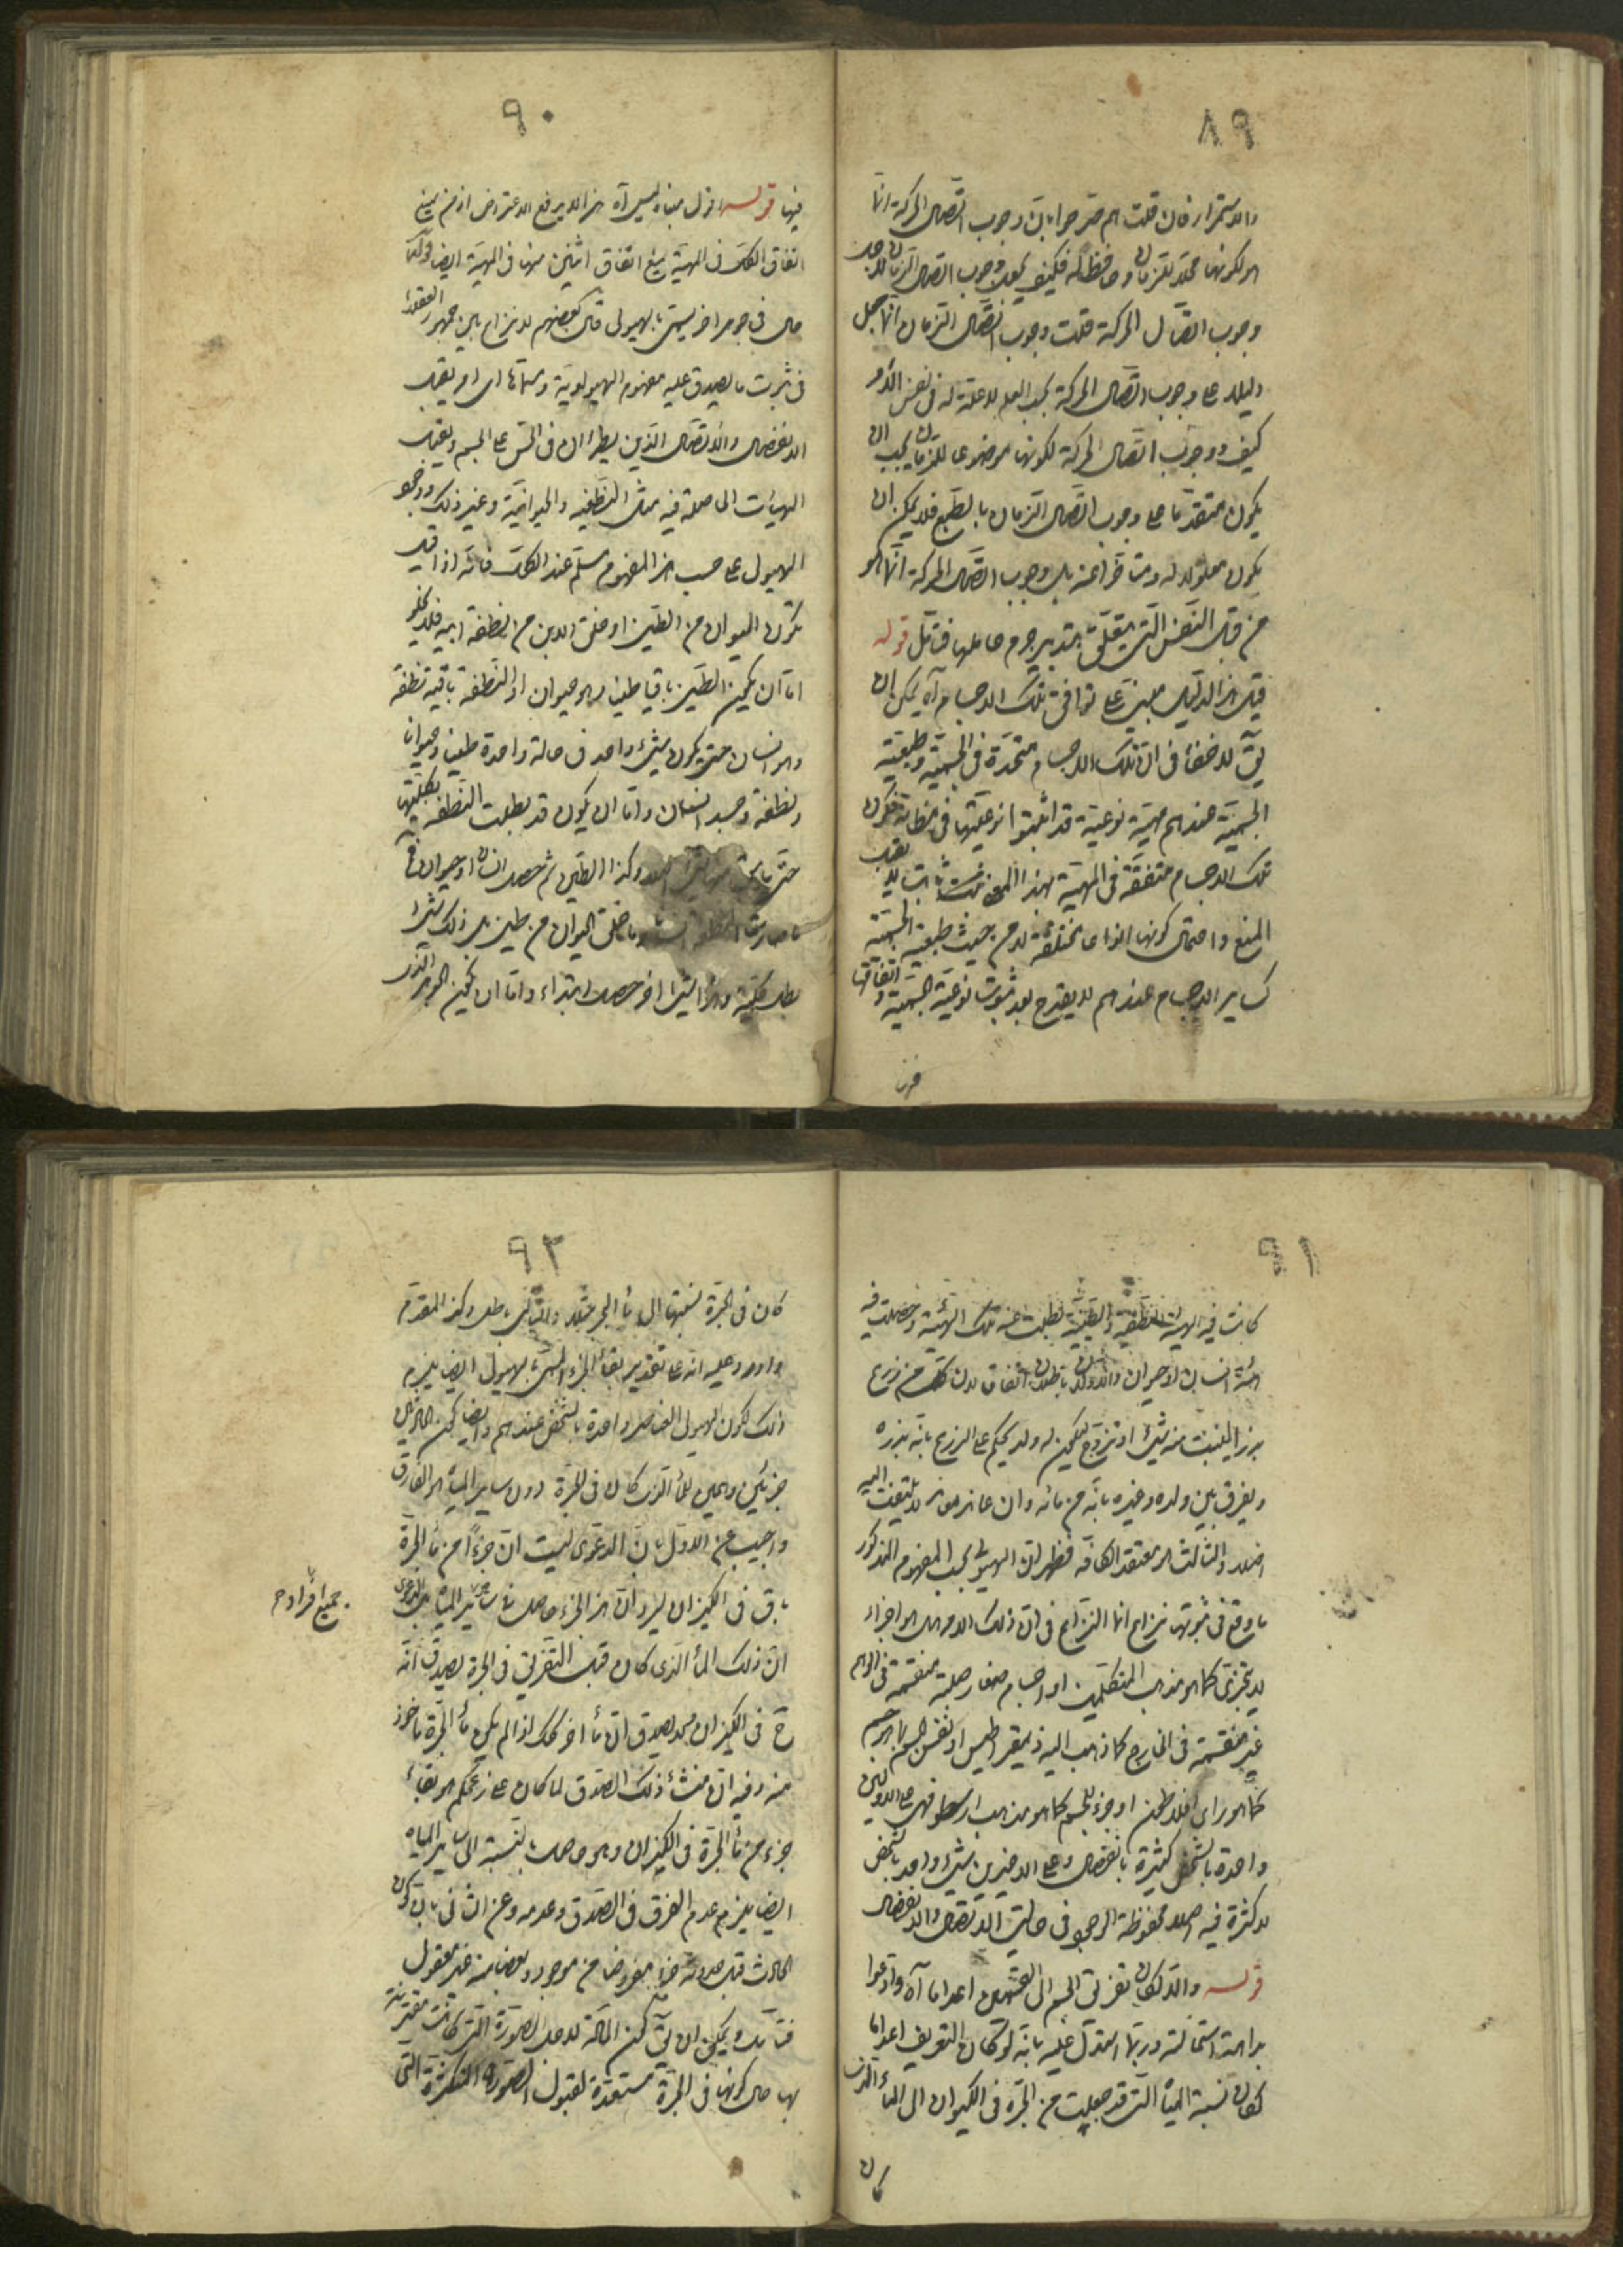 ٨٩
والاستمرار فان قلت هم صرحوا بان وجوب اتصال الحركة انما
هو لكونها محلا للزمان وحافظة له فكيف يكون وجوب اتصال الزمان لاجل
وجوب اتصال الحركة قلت وجوب اتصال الزمان انما جعل
دليلا على وجوب اتصال الحركة بحسب العلم لا علة له في نفس الامر
كيف ووجوب اتصال الحركة لكونها موضوعا للزمان يجب ان
يكون متقدما على وجوب اتصال الزمان بالطبع فلا يمكن ان
يكون معلولا له ومتأخرا عنه بل وجوب اتصال الحركة انما هو
من قبل النفس التي يتعلق بتدبير جرم حاملها فتأمل قوله
قيل هذا الدليل مبني على توافق تلك الاجسام آه يمكن ان
يق لا خفاء في ان تلك الاجسام متحدة في الجسمية وطبيعة
الجسمية عندهم مهية نوعية قد اثبتوا نوعيتها في مظانه فكون
تلك الاجسام متفقة في المهية بهذا المعنى ثابت لا يقبل
المنع واحتمال كونها انواعا مختلفة لا من حيث طبيعة الجسمية
كساير الاجسام عندهم لا يقدح بعد ثبوت نوعية الجسمية واتفاقها
فيها
٩٠
فيها قوله اقول مبناه ليس آه هذا لا يدفع الاعتراض اذ من يمنع
اتفاق الكل في المهية يمنع اتفاق اثنين منها في المهية ايضا قوله
حال في جوهر اخر يسمى بالهيولى قال بعضهم لا نزاع بين جمهور العقلاء
في ثبوت ما يصدق عليه مفهوم الهيولوية ومسماها اي امر يقبل
الانفصال والاتصال الذين يطرءان في الحس على الجسم ويقبل
الهيئات الحاصلة فيه مثل النطفية والحيوانية وغير ذلك ووجود
الهيولى على حسب هذا المفهوم مسلم عند الكل فانه اذا قيل
تكون الحيوان من الطين او خلق الابن من نطفة ابيه فلا يخلو
اما ان يكون الطين باقيا طينا وهو حيوان او النطفة باقية نطفة
وهو انسان حتى يكون شيء واحد في حالة واحدة طينا وحيوانا
ونطفة وجسد انسان واما ان يكون قد بطلت النطفة بكليتها
حتى وكذا الطين ثم حصل انسان او حيوان في
ما صارت النطفة وما خلق الحيوان من طين بل ذلك شيء
بطل بكليته وهذا شيء اخر حصل ابتداء واما ان يكون الجوهر الذي
٩١
كانت فيه الهيئة النطفية والطينية بطلت عنه تلك الهيئة وحصلت فيه
هيئة انسان او حيوان والاولان باطلان اتفاق لان كل من زرع
بزرا لينبت منه شيء او تزوج ليكون له ولد يحكم على الزرع بانه بزره
ويفرق بين ولده وغيره بانه من مائه وان عاند معاند لا يلتفت اليه
اصلا والثالث هو معتقد الكافة فظهر ان الهيولى بحسب المفهوم المذكور
ما وقع في ثبوتها نزاع انما النزاع في ان ذلك الامر هل هو اجزاء
لا يتجزى كما هو مذهب المتكلمين او اجسام صغار صلبة منقسمة في الوهم
غير منقسمة في الخارج كما ذهب اليه ذيمقراطيس او نفس الجسم بما هو جسم
كما هو راى افلاطون او جزء للجسم كما هو مذهب ارسطو فهي على الاولين
واحدة بالشخص كثيرة بانفصال وعلى الاخيرين شيء واحد بالشخص
لا كثرة فيه اصلا محفوظة الوجود في حالتي الاتصال والانفصال
قوله والا لكان تفريق الجسم الى القسمين اعداما آه وادعوا
بداهة استحالته وربما استدل عليه بانه لو كان التفريق اعداما
لكان نسبة المياه التي قد جعلت من الجرة في الكيزان الى الماء الذي
كان
٩٢
كان في الجرة نسبتها الى ماء البحر مثلا والتالي باطل وكذا المقدم
واورد عليه انه على تقدير بقاء الجزء المسمى بالهيولى ايضا يلزم
ذلك لكون هيولى العناصر واحدة بالشخص عندهم وايضا يكون الماء
جزئين وهمين للماء الذي كان في الجرة دون ساير المياه هو الفارق
واجيب عن الاول بان الدعوى ليست ان جزءا من ماء الجرة
باق في الكيزان ليرد ان هذا الجزء حاصل في ساير المياه بل الدعوى
ان ذلك الماء الذي كان قبل التفريق في الجرة يصدق انه
ح في الكيزان ولا يصدق ان ماء اخر كذلك اذا لم يكن ماء الجرة ماخوذ
منه وفيه ان منشأ ذلك الصدق لما كان على زعمكم هو بقاء
جزء من ماء الجرة في الكيزان وهو حاصل بالنسبة الى ساير المياه
ايضا يلزم عدم الفرق في الصدق وعدمه وعن الثاني بان كون
الحادث قبل حدوثه جزءا مفروضا من موجود وبعضا منه غير معقول
فتأمل ويمكن ان يق كون المادة لاجل الصورة التي كانت مقترنة
بها حال كونها في الجرة مستعدة لقبول الصورة المتكثرة التي
جميع افراده